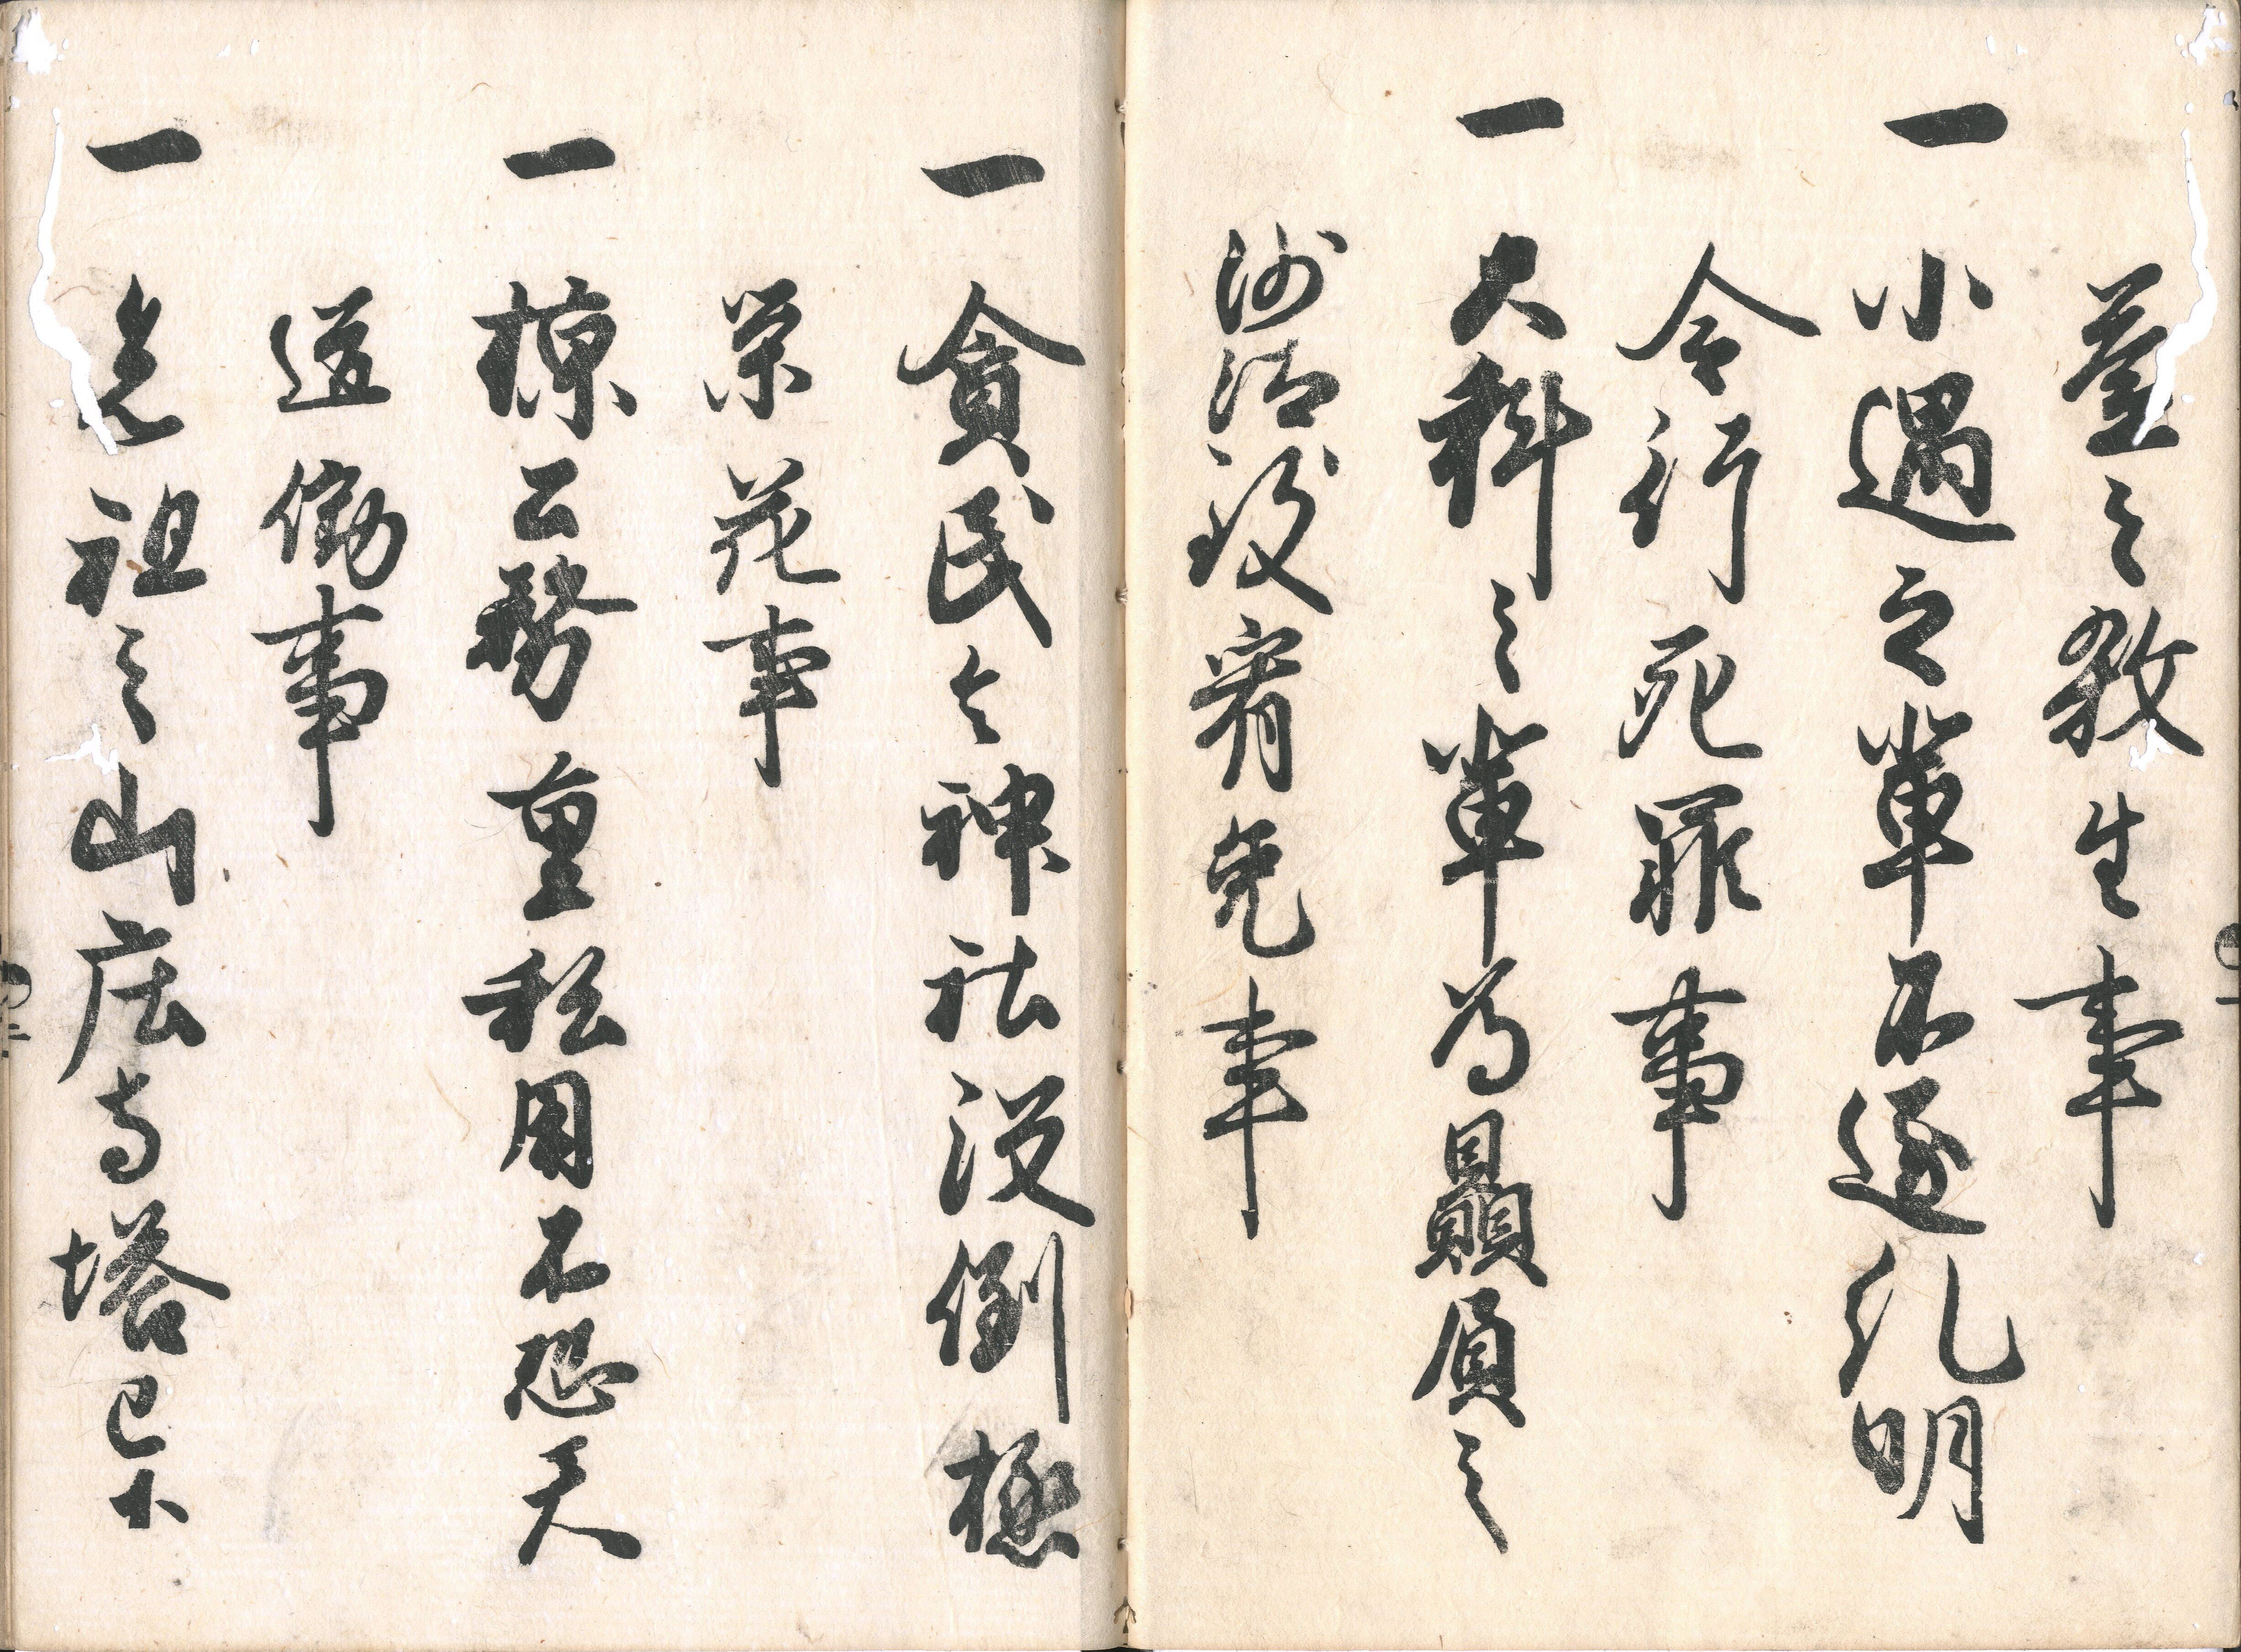 益之殺生事
一 小過之輩不遂糺明
令行死罪事
一 大科之輩為贔屓之
沙汰致宥免事
一 貪民令神社没倒極
栄花事
一 掠公務重私用不恐天
道働事
一 先祖之山庄寺塔已下